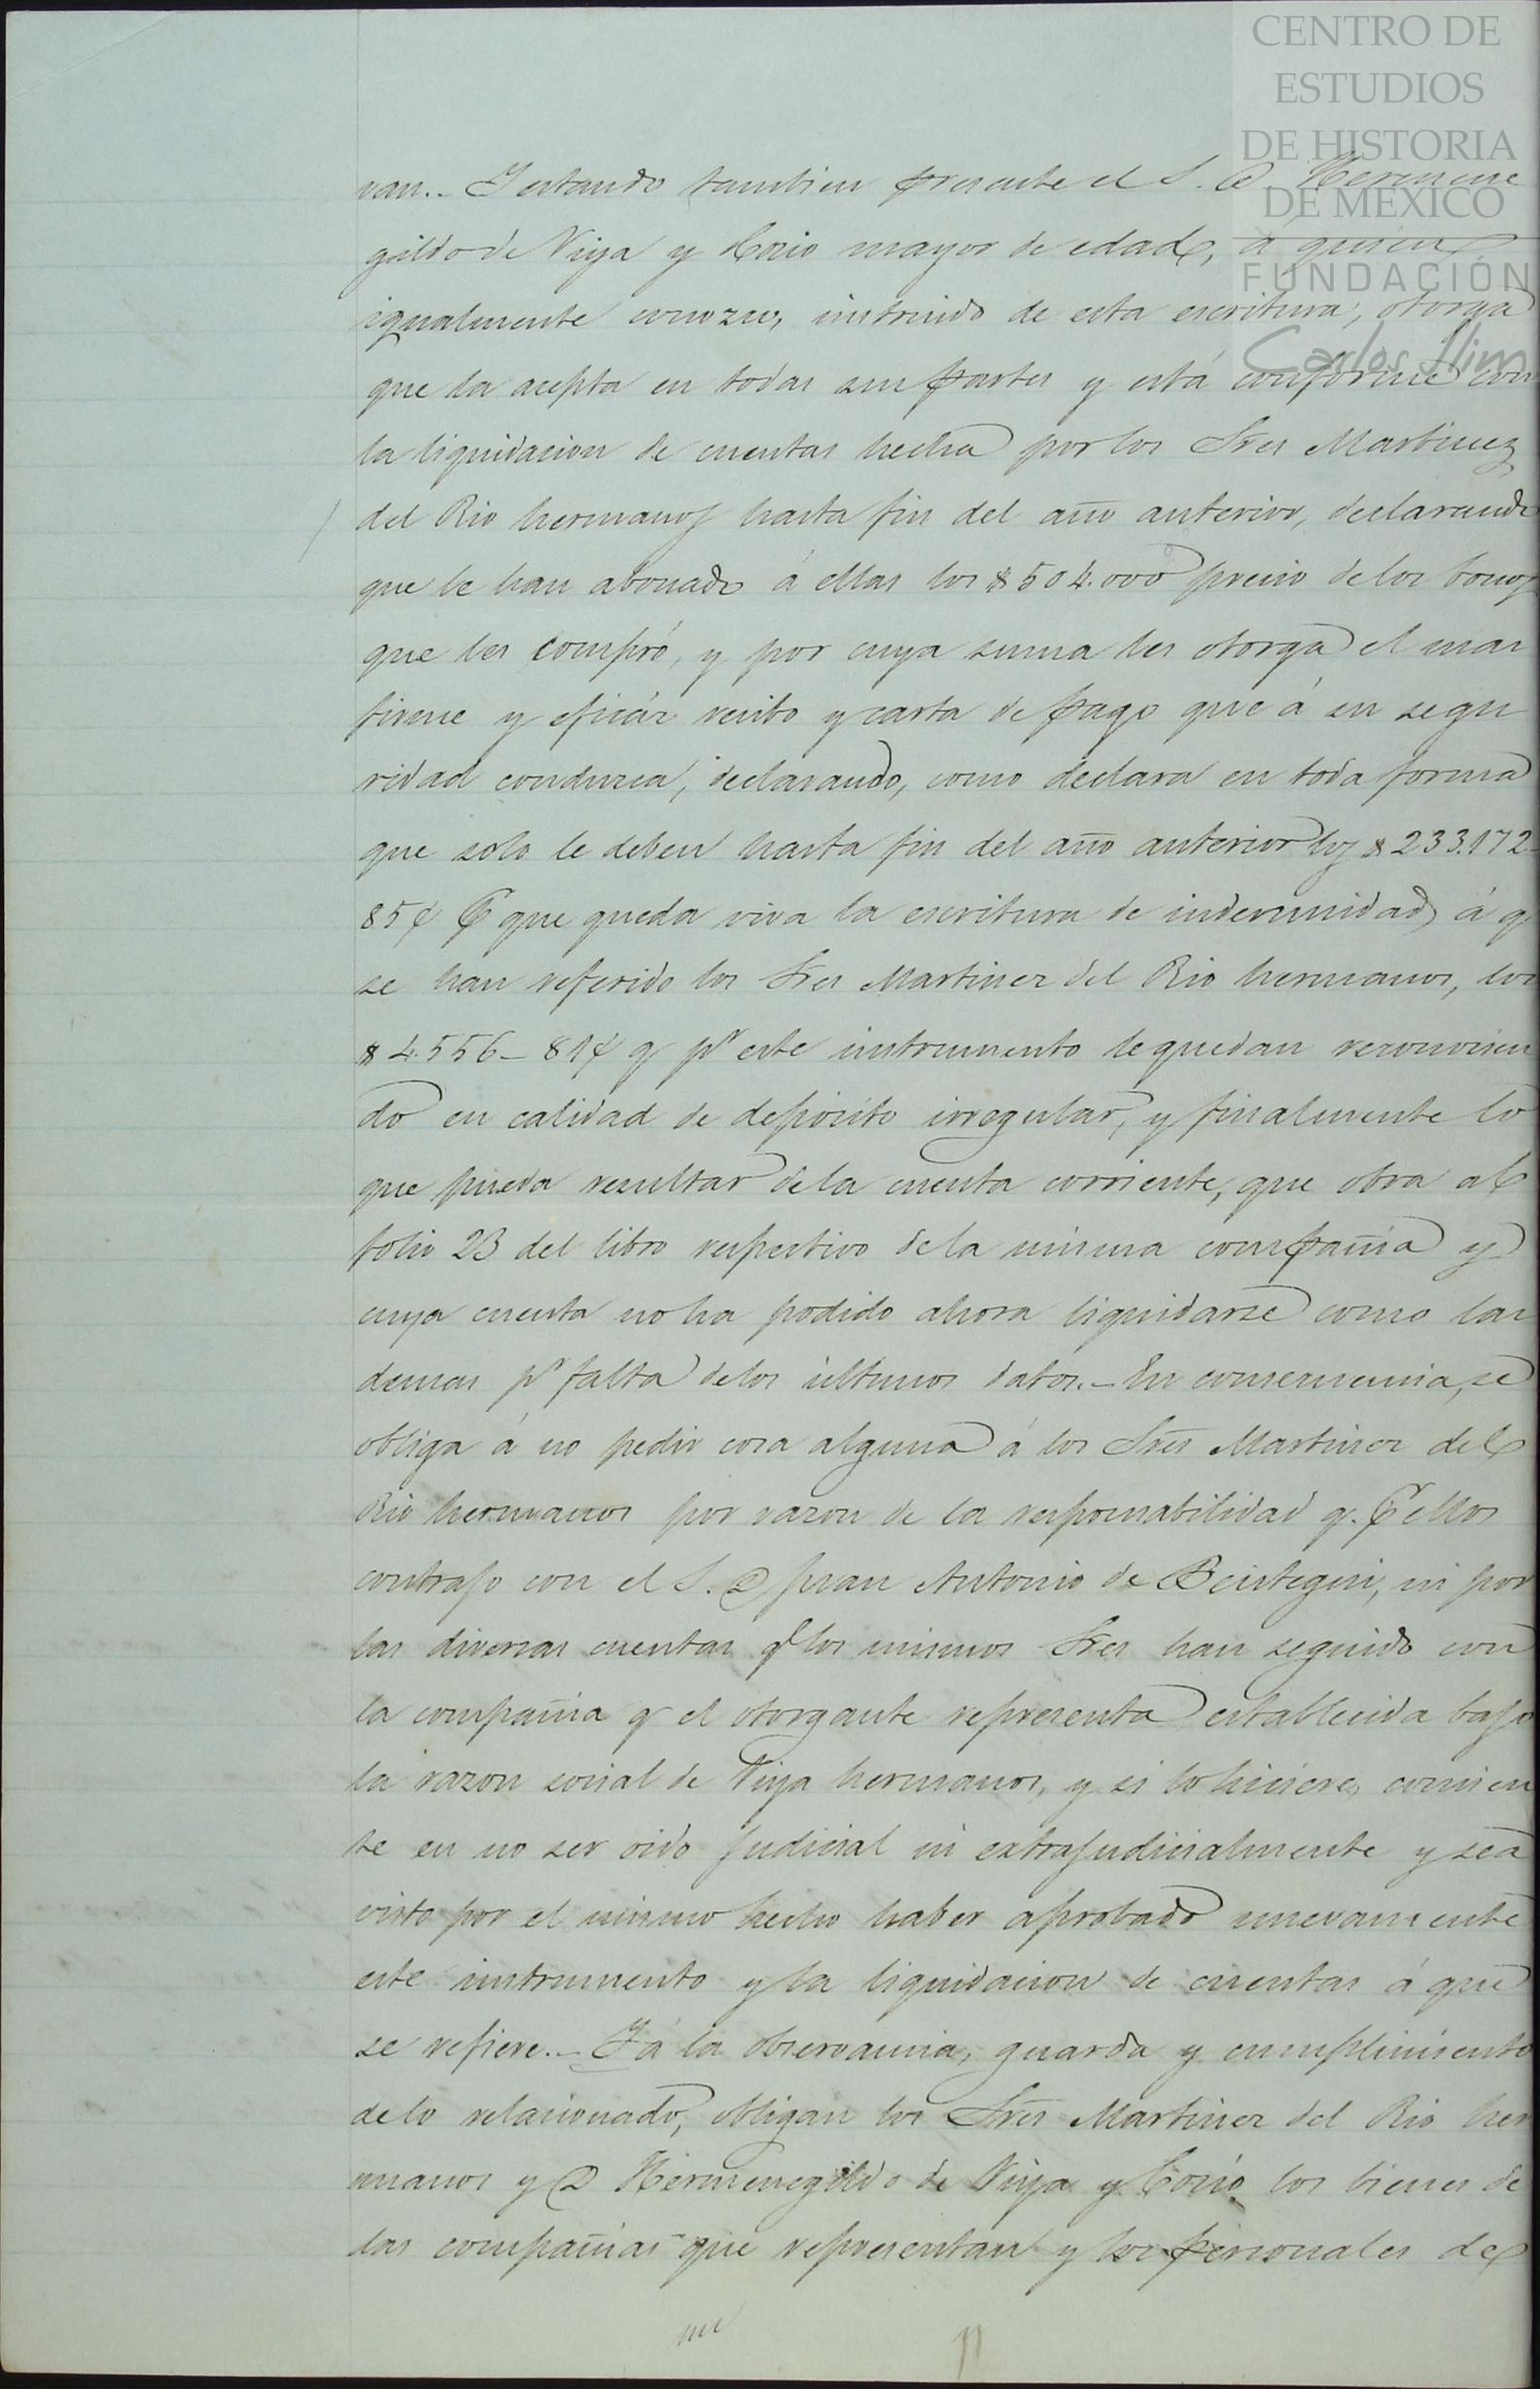 CENTRO DE
ESTUDIOS
DE HISTORIA
DE MEXICO
FUNDACIÓN
Carlos Slim
van.. Y estando tambien presente el S. D. Hermene
gildo de Viya y Cosio mayor de edad, á quien
igualmente conozco, instruido de esta escritura, otorga
que la acepta en todas sus partes y está conforme con
la liquidacion de cuentas hecha por los Sres Martinez
del Rio hermanos hasta fin del año anterior, declarando
que le han abonado á ellas los $504.000 precio de los bonos
que les compró, y por cuya suma les otorga el mas
firme y eficáz recibo y carta de pago que á su segu
ridad conduzca, declarando, como declara en toda forma
que solo le deben hasta fin del año anterior los $233.172-
85¢ que queda viva la escritura de indemnidad, á q
se han referido los Sres Martinez del Rio hermanos, los
$4.556-81¢ q pr este instrumento le quedan reconocien
do en calidad de depósito irregular, y finalmente lo
que pueda resultar de la cuenta corriente, que obra al
folio 23 del libro respectivo de la misma compañia y
cuya cuenta no ha podido ahora liquidarse como las
demas pr falta de los ultimos datos.- En consecuencia, se
obliga á no pedir cosa alguna á los Sres Martinez del
Rio hermanos por razon de la responsabilidad q. ellos
contrajo con el S. D Juan Antonio de Beistegui, ni por
las diversas cuentas q los mismos Sres han seguido con
la compañia q el otorgante representa establecida bajo
la razon social de Viya hermanos, y si lo hiciere, consien
te en no ser oido judicial ni extrajudicialmente y sea
visto por el mismo hecho haber aprobado nuevamente
este instrumento y la liquidacion de cuentas á que
se refiere.- Y á la observancia, guarda y cumplimiento
de lo relacionado, obligan los Sres Martinez del Rio her
manos y D Hermenegildo de Viya y Cosio los bienes de
las compañias que representan y los personales del